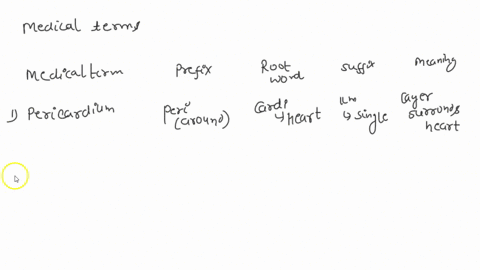 Medical terms
Medical term Prefix Root word suffix meaning
1) Pericardium peri (around) cardi ↳ heart ium ↳ single layer surrounds heart